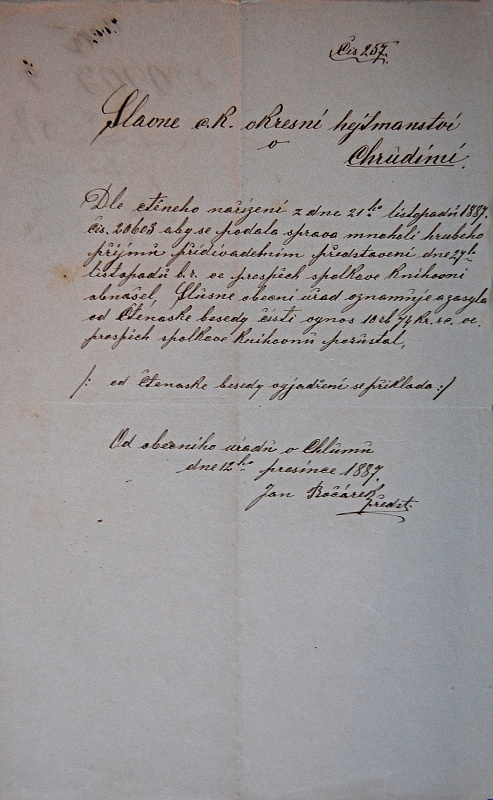 Čís 257.
Slavné c.k. okresní hejtmanství
v
Chrudimi.
Dle ctěného nařízení z dne 21ho listopadů 1887.
čís. 20603 aby se podala sprava mnoholi hrubého
příjmů při divadelním představení dne 27ho
listopadů b.r. ve prospěch spolkove knihovni
obnášel, Slušne obecní úřad oznamůje a zasyla
od Čtenaske besedy čistí vynos 10 zl 74 kr. že, ve
prospěch spolkove knihovnů pozůstal,
/: od čtenaske besedy vyjadření se přiklada :/
Od obecního úřadů v Chlůmů
dne 12ho presince 1887.
Jan Kočárek
předst.